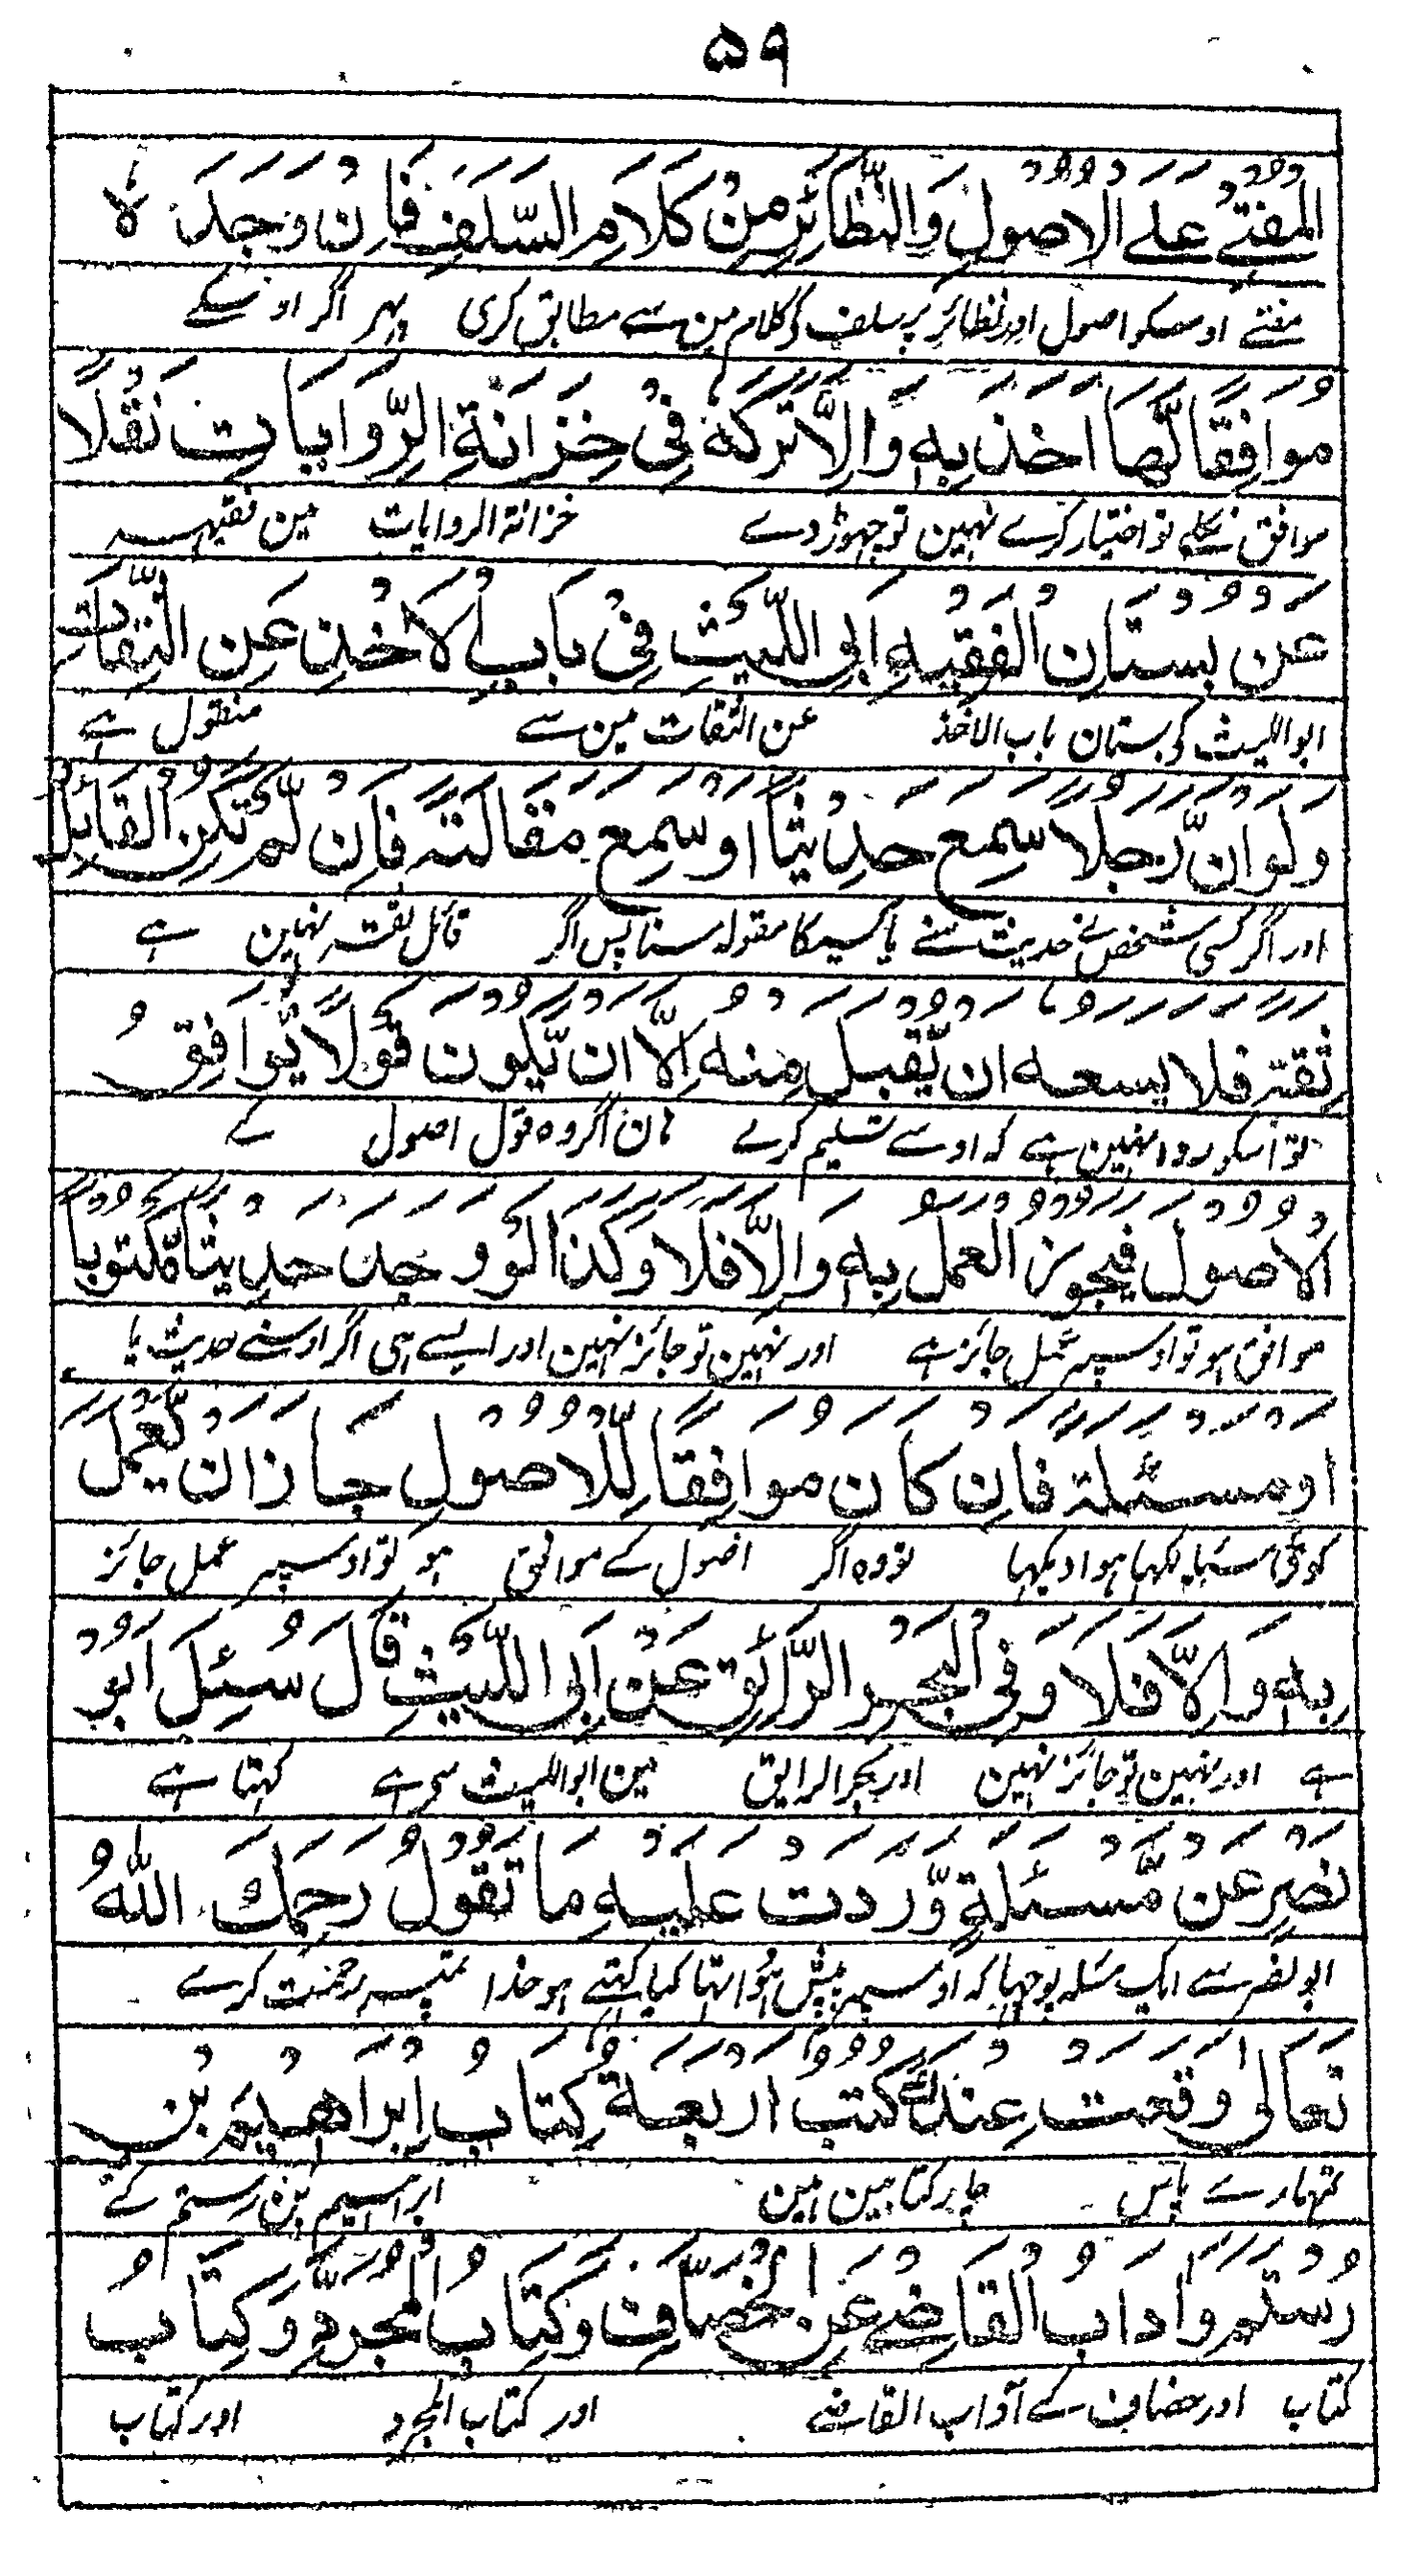 ۵۹
الْمُفْتِيْ عَلَى الْاُصُوْلِ وَالنَّظَائِرِ مِنْ كَلَامِ السَّلَفِ فَاِنْ وَجَدَهٗ
مفتے اوسکو اصول اور نظائر پر سلف کو کلام مین سے مطابق کری پہر اگر اوسکے
مُوَافِقًا لَّهَا اَخَذَ بِهٖ وَاِلَّا تَرَكَهٗ فِيْ خِزَانَةِ الرِّوَايَاتِ نَقْلًا
موافق نکلے تو اختیار کرے نہین تو چہوڑ دے خزانۃ الروایات مین فقیہ
عَنْ بُسْتَانِ الْفَقِيْهِ اَبِي اللَّيْثِ فِيْ بَابِ الْاَخْذِ عَنِ الثِّقَاتِ
ابو اللیث کی بستان باب الاخذ عن الثقات مین سے منقول ہے
وَلَوْ اَنَّ رَجُلًا سَمِعَ حَدِيْثًا اَوْ سَمِعَ مَقَالَةً فَاِنْ لَّمْ تَكُنِ الْقَائِلُ
اور اگر کسی شخص نے حدیث سنے یا کسیکا مقولہ سنا پس اگر قائل ثقہ نہین ہے
ثِقَةً فَلَا يَسَعُهٗ اَنْ يَّقْبَلَ مِنْهُ اِلَّا اَنْ يَّكُوْنَ قَوْلًا يُّوَافِقُ
تو اسکو روا نہین ہے کہ اوسے تسلیم کرلے ہان اگر وہ قول اصول کے
الْاُصُوْلَ فَيَجُوْزُ الْعَمَلُ بِهٖ وَاِلَّا فَلَا وَكَذَا لَوْ وَجَدَ حَدِيْثًا مَّكْتُوْبًا
موافق ہو تو اوسپر عمل جائز ہے اور نہین تو جائز نہین اور ایسے ہی اگر اوسنے حدیث یا
اَوْ مَسْئَلَةً فَاِنْ كَانَ مُوَافِقًا لِّلْاُصُوْلِ جَازَ اَنْ يَّعْمَلَ
کوئی مسئلہ لکہا ہوا دیکہا تو وہ اگر اصول کے موافق ہو تو اوسپر عمل جائز
بِهٖ وَاِلَّا فَلَا وَفِي الْبَحْرِ الرَّائِقِ عَنْ اَبِي اللَّيْثِ قَالَ سُئِلَ اَبُوْ
ہے اور نہین تو جائز نہین اور بحر الرایق مین ابو اللیث سے ہے کہتا ہے
نَصْرٍ عَنْ مَّسْئَلَةٍ وَّرَدَتْ عَلَيْهِ مَا تَقُوْلُ رَحِمَكَ اللّٰهُ
ابو نصر سے ایک مسئلہ پوچہا کہ اوسپر پیش ہوا تہا کیا کہتے ہو خدا تمپر رحمت کرے
تَعَالٰى وَقَعَتْ عِنْدَكَ كُتُبٌ اَرْبَعَةٌ كِتَابُ اِبْرَاهِيْمَ بْنِ
تمہارے پاس چار کتابین ہین ابراہیم بن رستم کے
رُسْتَمَ وَاٰدَابُ الْقَاضِيْ عَنِ الْخَصَّافِ وَكِتَابُ الْمُجَرَّدِ وَكِتَابُ
کتاب اور خصاف کے آداب القاضے اور کتاب المجرد اور کتاب